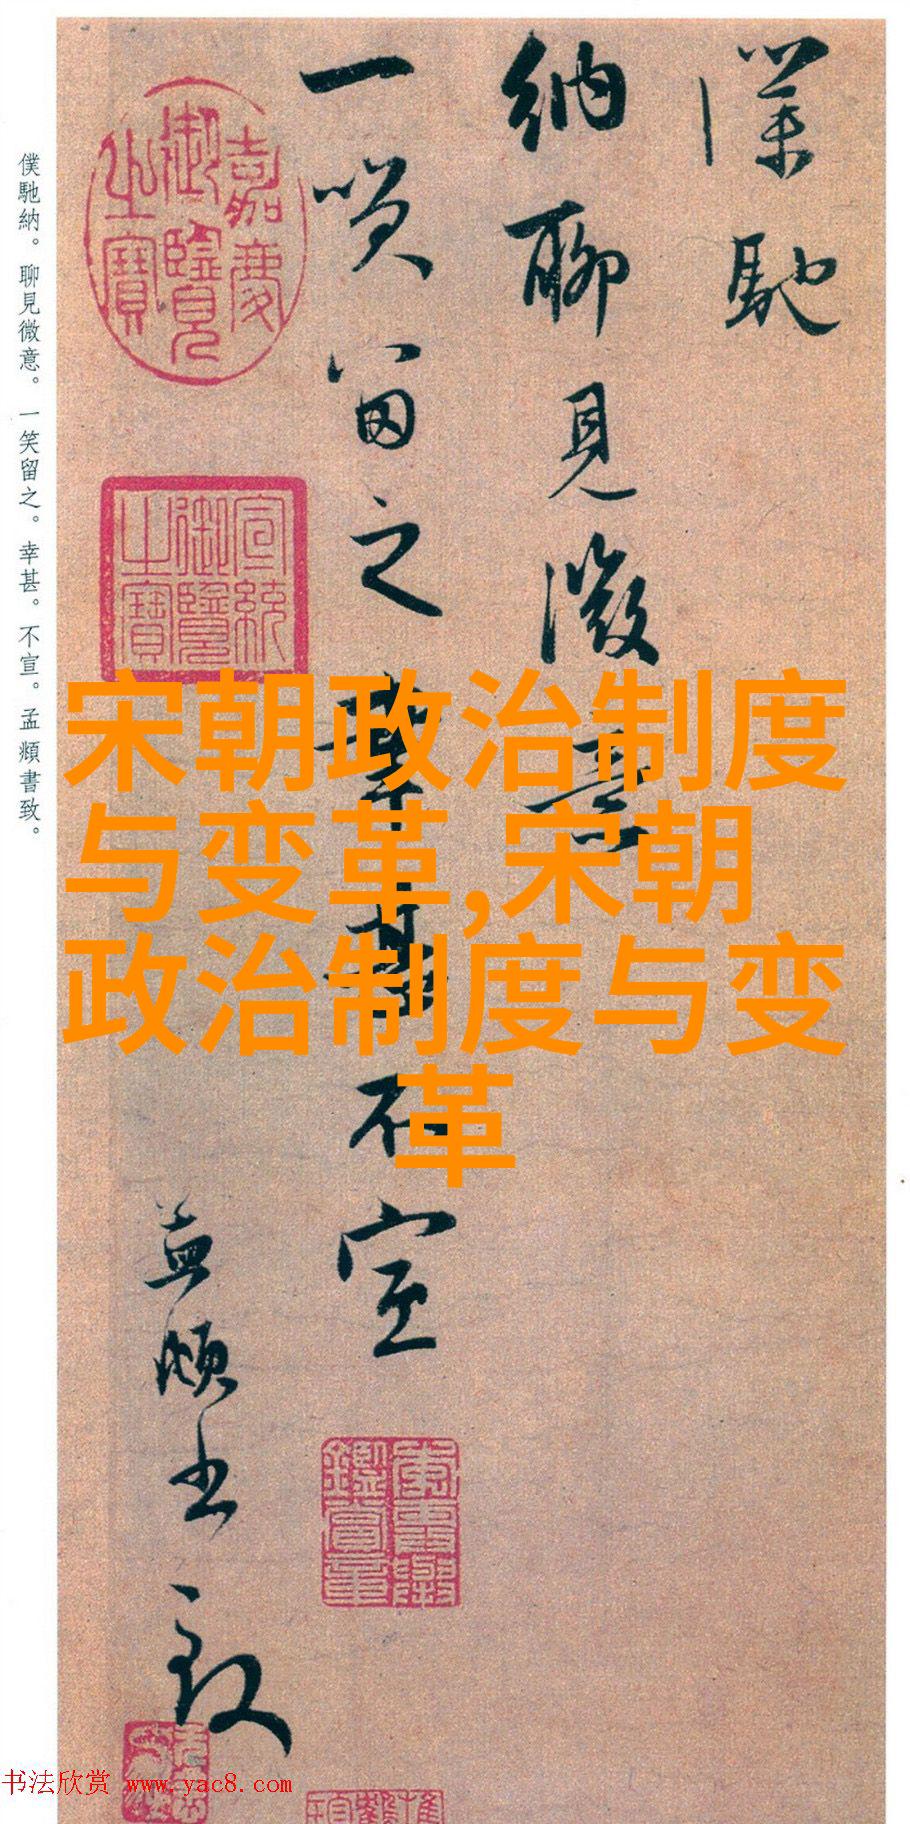 僕馳
納聊見微意
一笑留之幸甚不宣
孟頫书致
嘉慶
御覽
之寶
宣統
御覽
之寶
僕馳納。聊見微意。一笑留之。幸甚。不宣。孟頫書致。
宋朝政治制度
与变革,宋朝
政治制度与变
革
书法欣赏 www.yac8.com